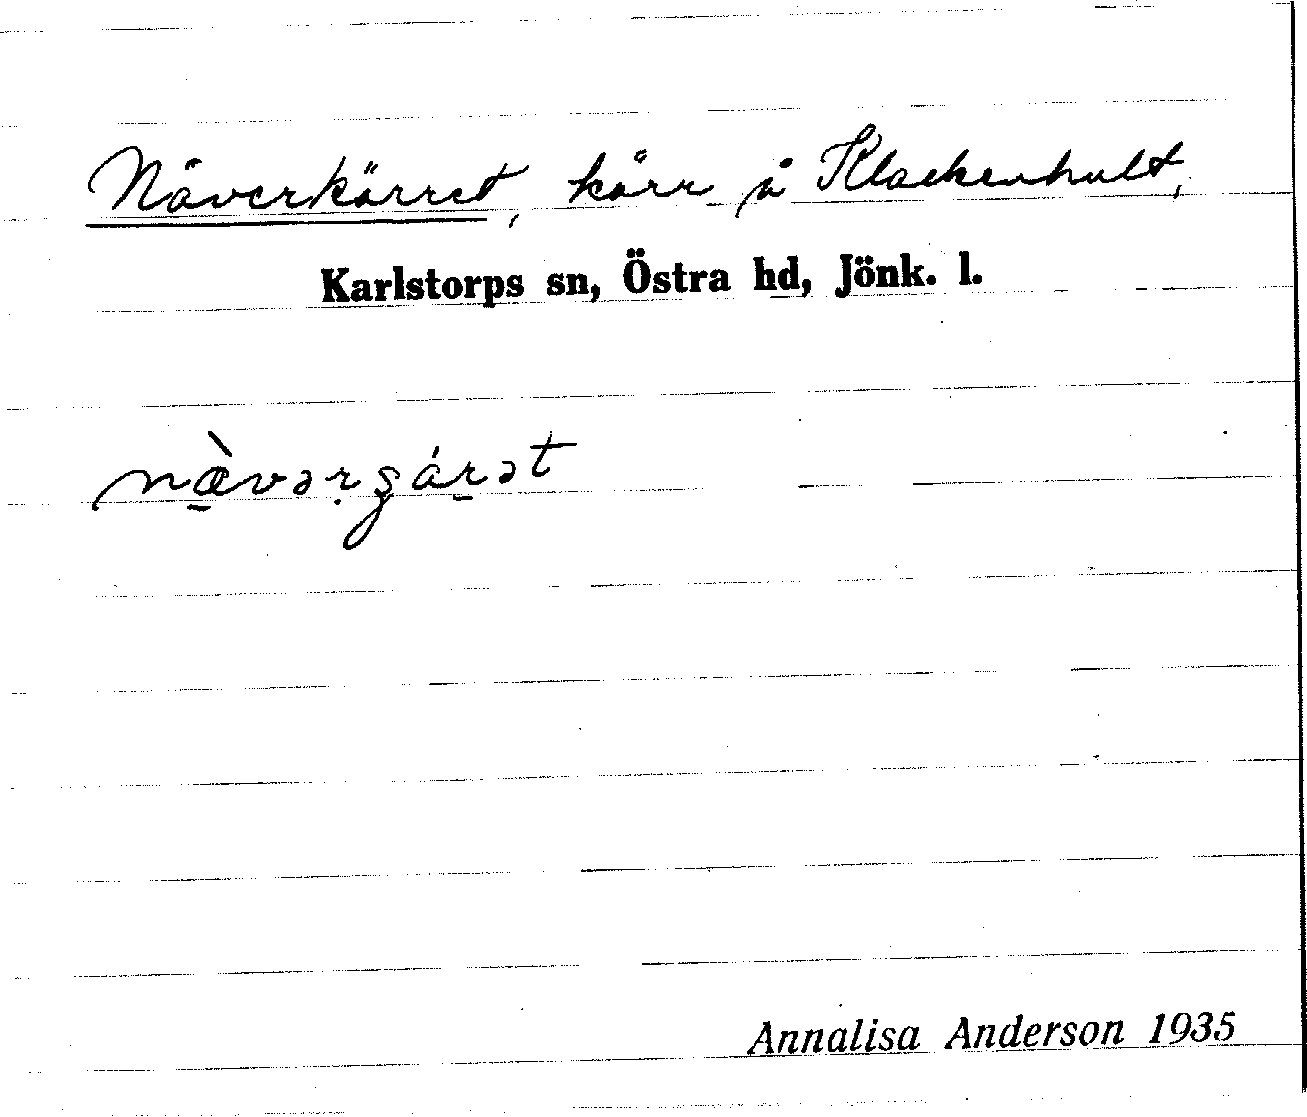 Näverkärret, kärr på Klackenhult,
Karlstorps sn, Östra hd, Jönk. l.
Annalisa Anderson 1935